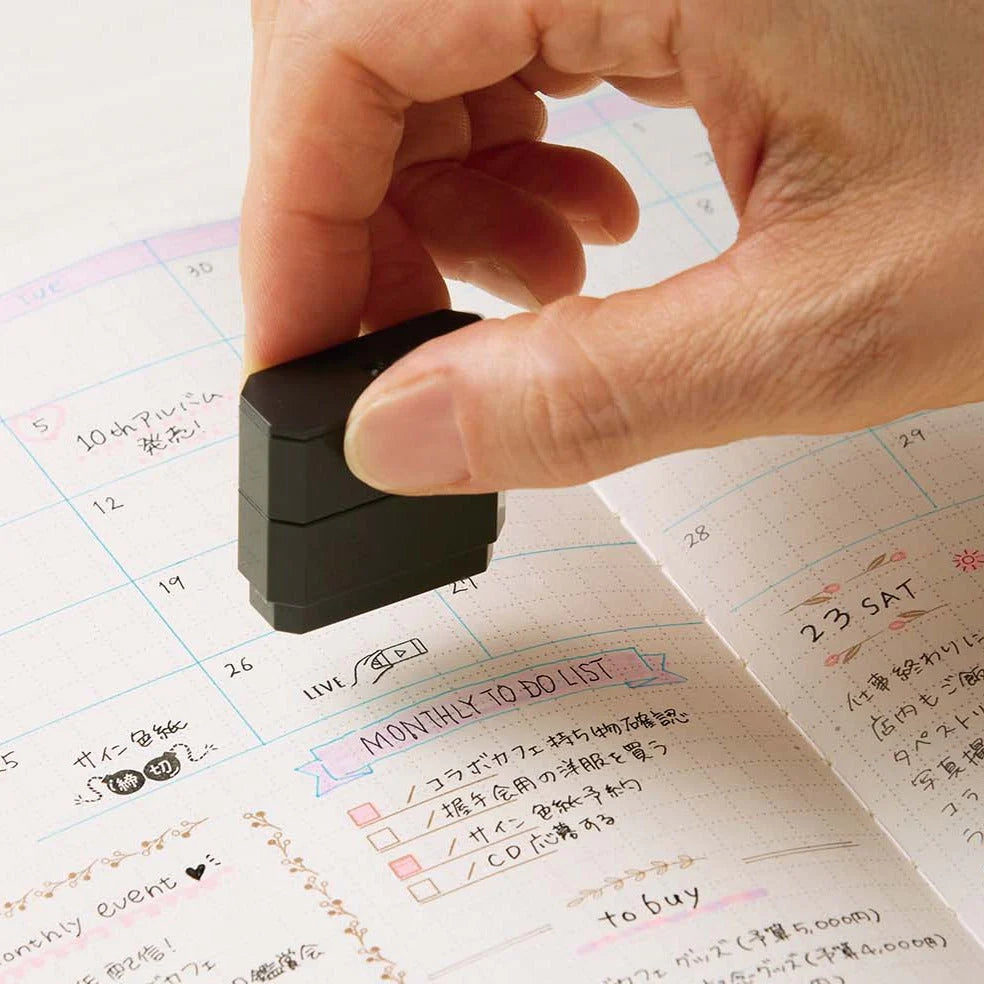 Tue
30
1
3
8
5
10thアルバム
発売!
12
19
26
27
29
28
LIVE
サイン色紙
締切
MONTHLY TO DO LIST
コラボカフェ持ち物確認
握手会用の洋服を買う
サイン色紙予約
CD応募する
monthly event
配信!
カフェ
鑑賞会
to buy
カフェ グッズ (予算5,000円)
グッズ (予算4,000円)
23 SAT
仕事終わりに
店内もご飯
タペストリ
写真撮
コラ